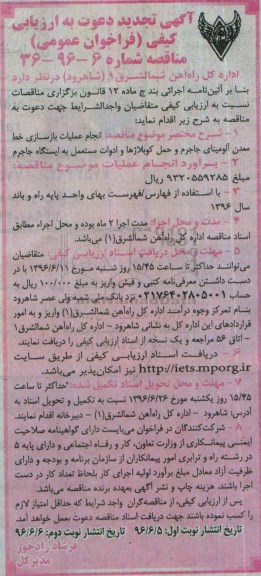 آگهی تجدید دعوت به ارزیابی
کیفی (فراخوان عمومی)
مناقصه شماره ۶ -۹۶ -۳۶
اداره کل راه‌آهن شمالشرق۱ (شاهرود) درنظر دارد
بنا بر آئین‌نامه اجرائی بند ج ماده ۱۲ قانون برگزاری مناقصات
نسبت به ارزیابی کیفی متقاضیان واجدالشرایط جهت دعوت به
مناقصه به شرح زیر اقدام نماید:
۱ - شرح مختصر موضوع مناقصه: انجام عملیات بازسازی خط
معدن آلومینای جاجرم و حمل کوپلاژها و ادوات مستعمل به ایستگاه جاجرم
۲ - برآورد انجام عملیات موضوع مناقصه:
مبلغ ۹۳۲۰۵۵۹۲۸۵ ریال
۳ - با استفاده از فهارس/فهرست بهای واحد پایه راه و باند
سال ۱۳۹۶
۴ - مدت و محل اجرا: مدت اجرا ۲ ماه بوده و محل اجراء مطابق
اسناد مناقصه اداره کل راه‌آهن شمالشرق(۱) می‌باشد.
۵ - مهلت و محل دریافت اسناد ارزیابی کیفی: متقاضیان
می‌توانند حداکثر تا ساعت ۱۵/۴۵ روز شنبه مورخ ۱۳۹۶/۶/۱۱ با در
دست داشتن معرفی‌نامه کتبی و فیش واریز به مبلغ ۱۰۰/۰۰۰ ریال به
حساب ۰۲۱۷۶۴۰۲۸۰۵۰۰۱ نزد بانک ملی شعبه ولی عصر شاهرود
بنام تمرکز وجوه درآمد اداره کل راه‌آهن شمالشرق(۱) واریز و به امور
قراردادهای این اداره کل به نشانی شاهرود - اداره کل راه‌آهن شمالشرق۱
- اتاق ۵۶ مراجعه و یک نسخه از اسناد ارزیابی کیفی را دریافت نمایند.
۶ - دریافت اسناد ارزیابی کیفی از طریق سایت
http://iets.mporg.ir نیز امکان‌پذیر می‌باشد.
۷ - مهلت و محل تحویل اسناد تکمیل شده: حداکثر تا ساعت
۱۵/۴۵ روز یکشنبه مورخ ۱۳۹۶/۶/۲۶ نسبت به تکمیل و تحویل اسناد به
آدرس: شاهرود - اداره کل راه‌آهن شمالشرق(۱) - دبیرخانه اقدام نمایند.
۸ - شرکت‌کنندگان در فراخوان می‌بایست دارای گواهینامه صلاحیت
ایمنی پیمانکاری از وزارت تعاون، کار و رفاه اجتماعی و دارای پایه ۵
در رشته راه و ترابری امور پیمانکاران از سازمان برنامه و بودجه و دارای
ظرفیت آزاد معادل مبلغ برآورد اولیه اجرای کار بلحاظ تعداد کار در دست
اجرا باشند. هزینه چاپ و نشر آگهی بعهده برنده مناقصه می‌باشد.
پس از ارزیابی کیفی، از مناقصه‌گران واجد شرایط که حداقل امتیاز لازم
را کسب نموده باشند جهت دریافت اسناد مناقصه دعوت بعمل خواهد آمد.
تاریخ انتشار نوبت اول: ۹۶/۶/۵ تاریخ انتشار نوبت دوم: ۹۶/۶/۶
فرشاد رادجوز
مدیرکل